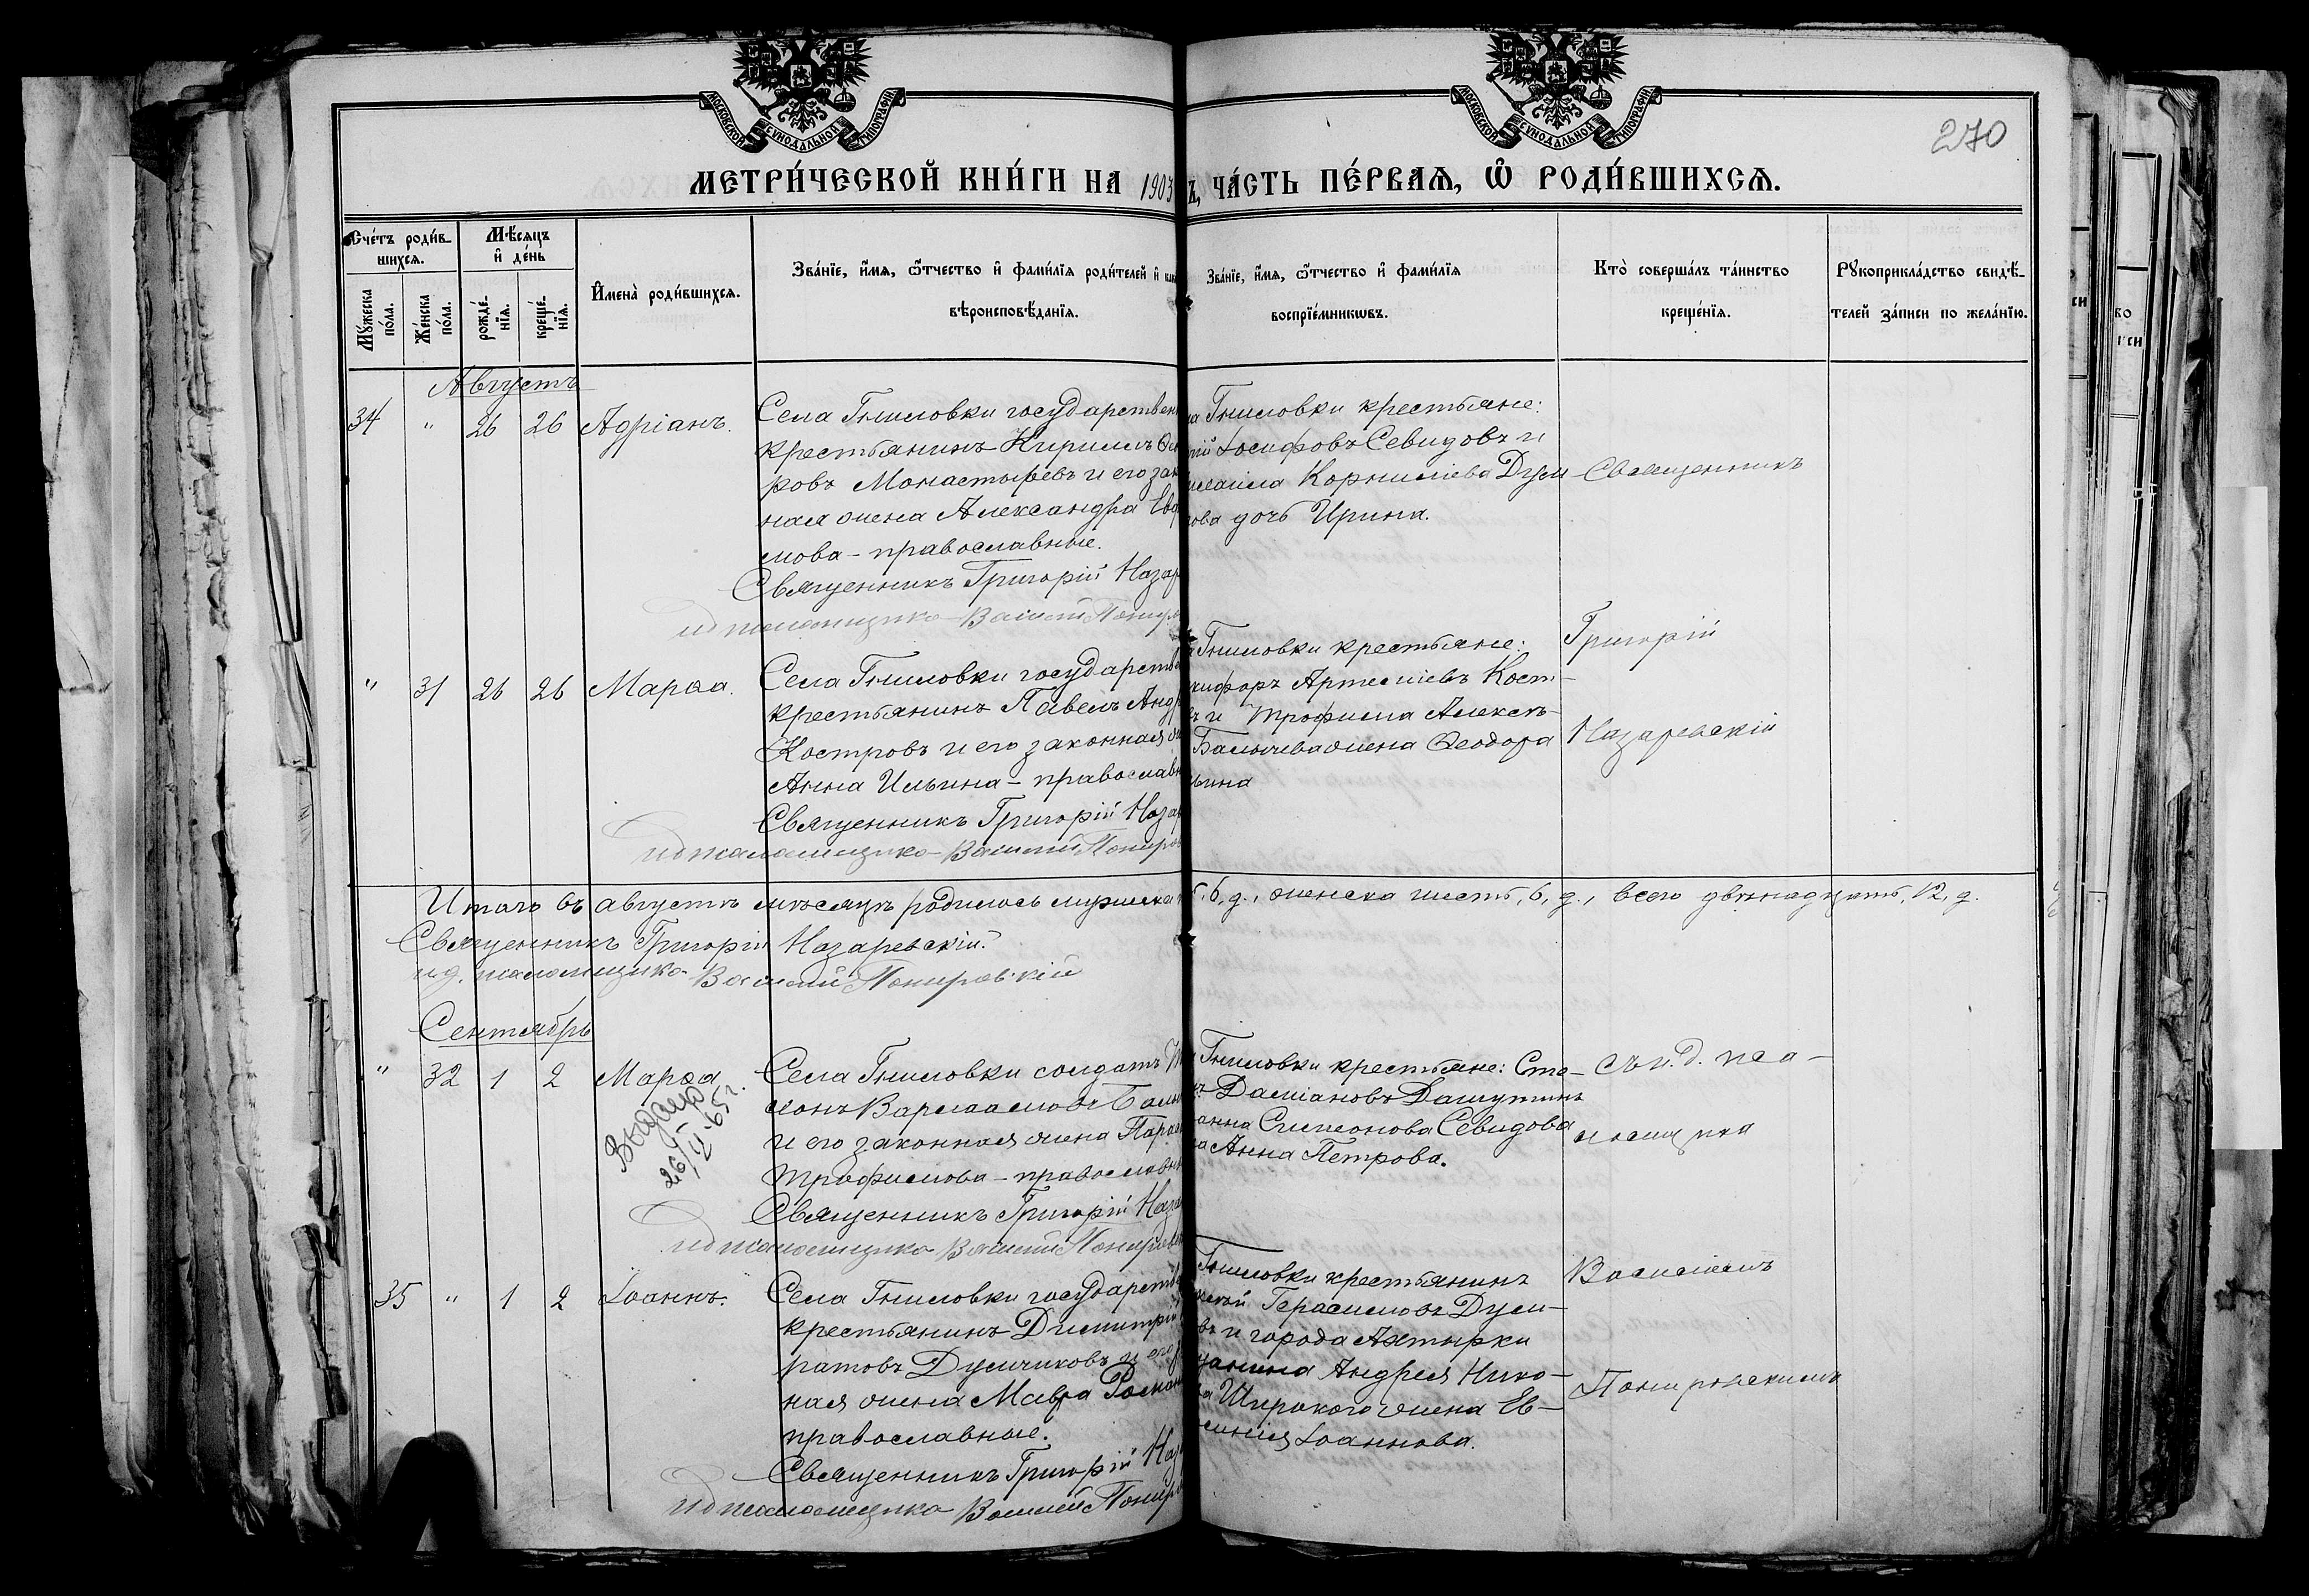 МОСКОВСКОЙ СѴНОДАЛЬНОЙ ТИПОГРАФІИ
МОСКОВСКОЙ СѴНОДАЛЬНОЙ ТИПОГРАФІИ
270
МЕТРИ́ЧЕСКОЙ КНИ́ГИ НА 1903
Ъ, ЧА́СТЬ ПЕ́РВАѦ, Ѡ҆ РОДИ́ВШИХСѦ.
Сче́тъ роди́в-
шихсѧ.
Мꙋ́жеска по́ла.
Же́нска по́ла.
Мѣ́сѧцъ
и҆ де́нь
рожде́нїѧ.
креще́нїѧ.
И҆мена̀ роди́вшихсѧ.
Зва́нїе, и҆́мѧ, ѻ҆́тчество и҆ фами́лїѧ роди́телей и҆ как
вѣроисповѣ́данїѧ.
Зва́нїе, и҆́мѧ, ѻ҆́тчество и҆ фами́лїѧ
воспрїе́мникѡвъ.
Кто̀ соверша́лъ та́инство
креще́нїѧ.
Рꙋкоприкла́дство свидѣ́-
телей за́писи по жела́нїю.
Августъ
34 " 26 26 Адріанъ.
Села Гниловки государствен
крестьянинъ Кириллъ
ровъ Монастыревъ и его зак
ная жена Александра Евф
мова - православные.
Священникъ Григорій Назар
и д псаломщика Василій Понир
Гниловки крестьяне:
Іосифовъ Севидовъ и
Корниліева Дум-
дочь Ирина.
Священникъ
" 31 26 26 Марѳа.
Села Гниловки государств
крестьянинъ Павелъ Андр
Костровъ и его законная ж
Анна Ильина - православн
Священникъ Григорій Назар
и д псаломщика Василій Пониров
Гниловки крестьяне:
кифоръ Артеміевъ Кост-
въ и Трофима Алексѣ-
Балычева жена Ѳеодора
ьина
Григорій
Назаревскій
Итого въ августѣ мѣсяцѣ родилось мужска
6, д., женска шесть, 6, д., всего двѣнадцать, 12, д.
Священникъ Григорій Назаревскій.
и д. псаломщика Василій Понировскій
Сентябрь
" 32 1 2 Марѳа
Выдано
26/II-65 г.
Села Гниловки солдатъ
монъ Варлаамовъ Балы
и его законная жена Парас
Трофимова - православн
Священникъ Григорій Наза
и д псаломщика Василій Понировс
Гниловки крестьяне: Сте-
Даміановъ Дашутинъ
Симеонова Севидова
Анна Петрова.
съ и. д. пса-
ломщика
35 " 1 2 Іоаннъ.
Села Гниловки государств
крестьянинъ Димитрій
ратовъ Думчиковъ и его з
ная жена Мавра Роман
православные.
Священникъ Григорій Наз
и д псаломщика Василій Понир
Гниловки крестьянинъ
Герасимовъ Дум-
въ и города Ахтырки
щанина Андрея Нико-
ва Широкого жена Ев-
Іоаннова.
Василіемъ
Понировскимъ